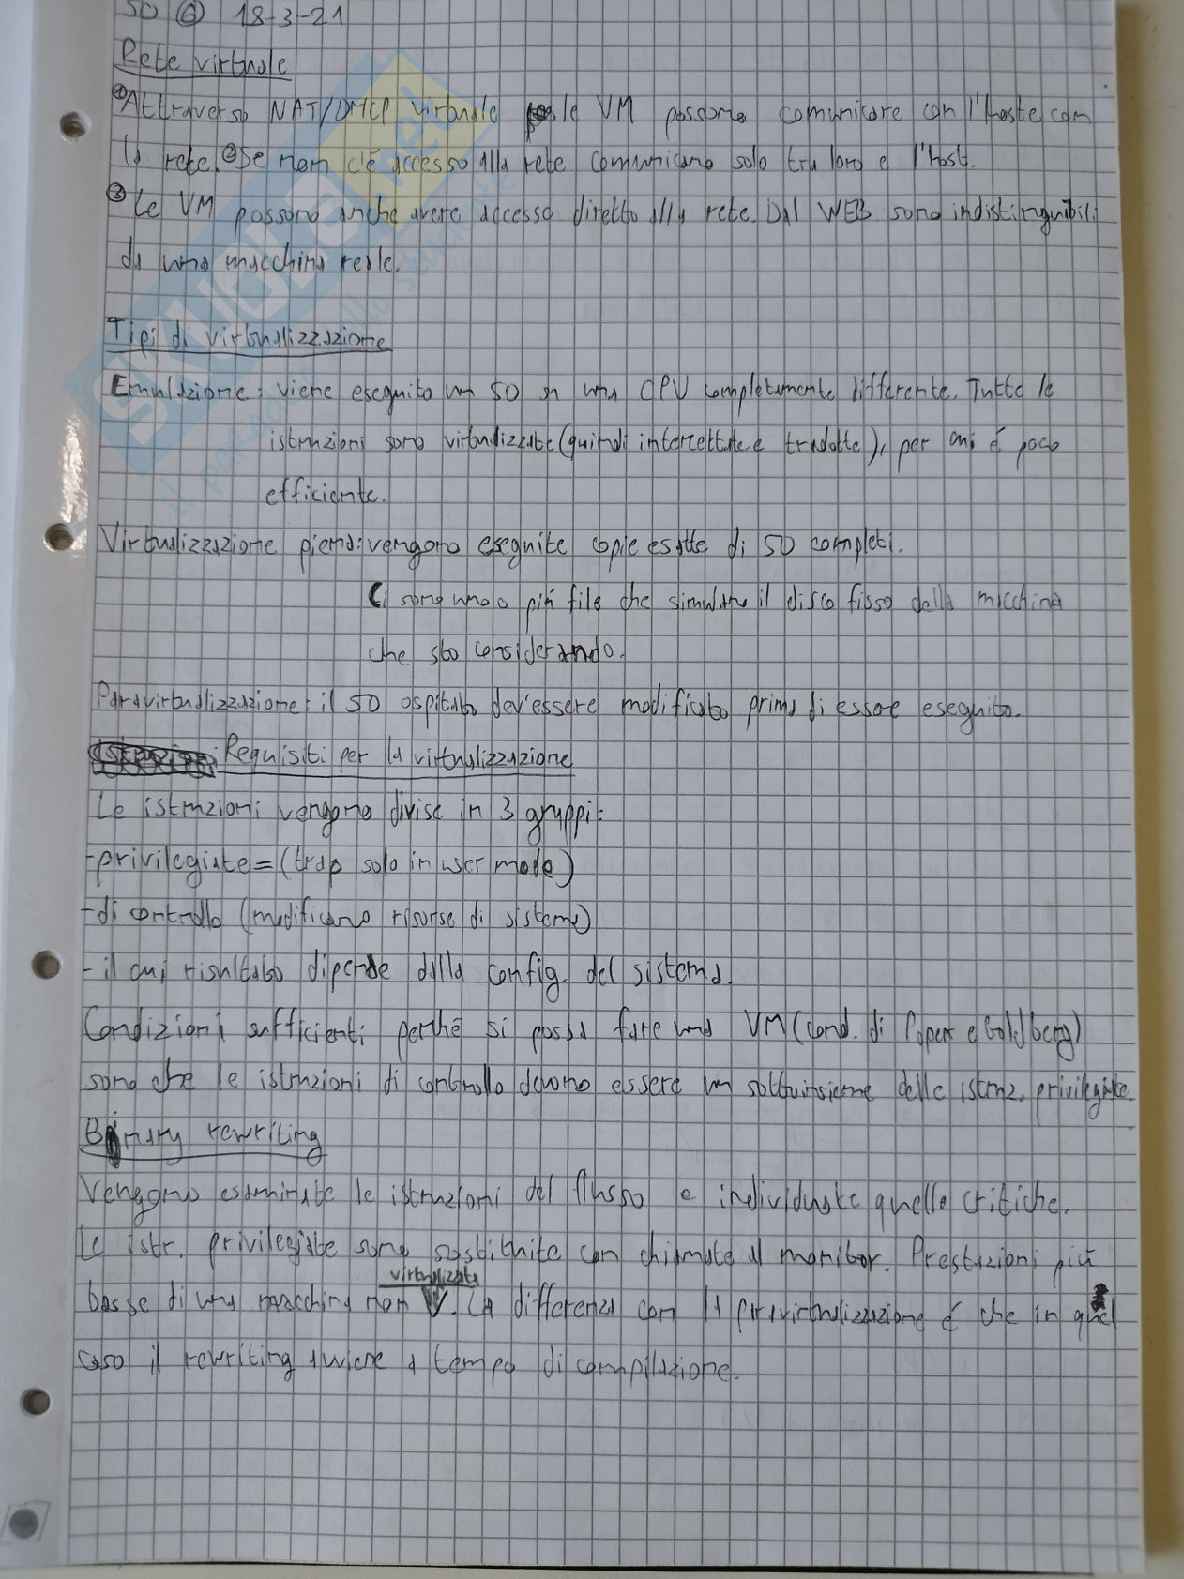 SO ⑥ 18-3-21
Rete virtuale
① Attraverso NAT/DHCP virtuale le VM possono comunicare con l'host e con
la rete. ② Se non c'è accesso alla rete comunicano solo tra loro e l'host.
③ Le VM possono anche avere accesso diretto alla rete. Dal WEB sono indistinguibili
da una macchina reale.
Tipi di virtualizzazione
Emulazione: viene eseguito un SO su una CPU completamente differente. Tutte le
istruzioni sono virtualizzate (quindi intercettate e tradotte), per cui è poco
efficiente.
Virtualizzazione piena: vengono eseguite copie esatte di SO completi.
Ci sono uno o più file che simulano il disco fisso della macchina
che sto considerando.
Paravirtualizzazione: il SO ospitato dev'essere modificato prima di essere eseguito.
Requisiti per la virtualizzazione
Le istruzioni vengono divise in 3 gruppi:
-privilegiate=(trap solo in user mode)
-di controllo (modificano risorse di sistema)
-il cui risultato dipende dalla config. del sistema.
Condizioni sufficienti perché si possa fare una VM (cond. di Popek e Goldberg)
sono che le istruzioni di controllo devono essere un sottoinsieme delle istruz. privilegiate.
Binary rewriting
Vengono esaminate le istruzioni del flusso e individuate quelle critiche.
Le istr. privilegiate sono sostituite con chiamate al monitor. Prestazioni più
basse di una macchina non virtualizzata. La differenza con la paravirtualizzazione è che in quel
caso il rewriting avviene a tempo di compilazione.